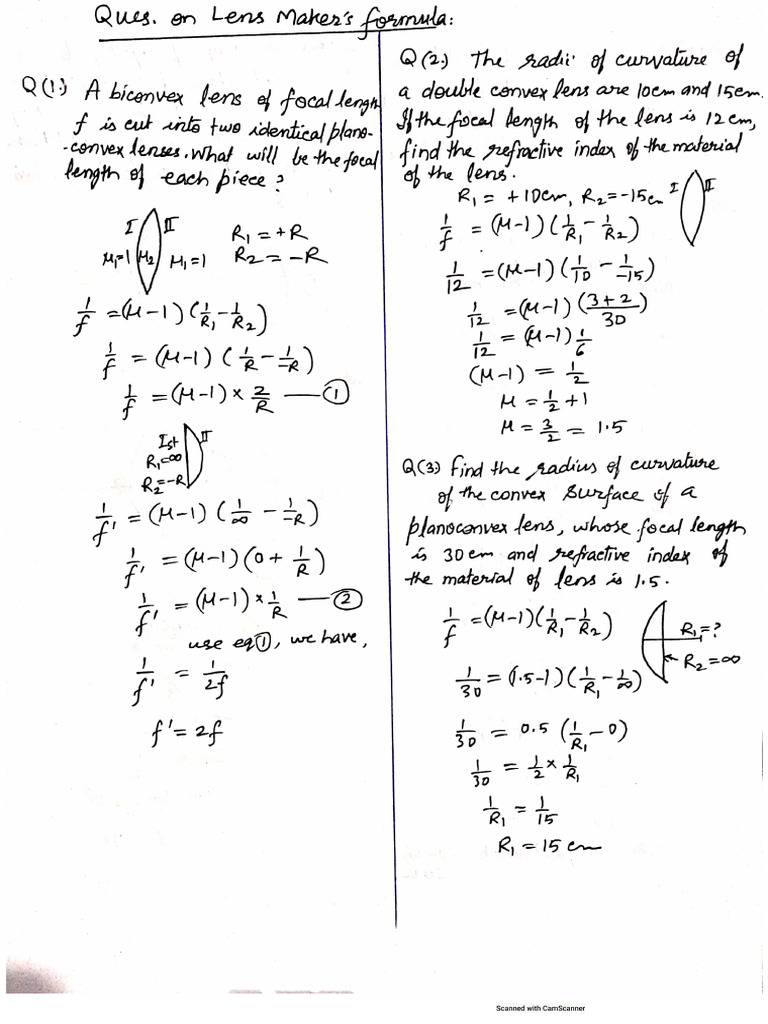 Ques. on Lens Maker's formula:
Q(1) A biconvex lens of focal length
f is cut into two identical plano-
-convex lenses. What will be the focal
length of each piece?
I II
μ₁=1 μ₂ μ₁=1
R₁ = +R
R₂ = -R
1/f = (μ-1) (1/R₁ - 1/R₂)
1/f = (μ-1) (1/R - 1/-R)
1/f = (μ-1) × 2/R —— ①
Ist II
R₁=∞
R₂=-R
1/f' = (μ-1) (1/∞ - 1/-R)
1/f' = (μ-1) (0 + 1/R)
1/f' = (μ-1) × 1/R —— ②
use eq①, we have,
1/f' = 1/2f
f' = 2f
Q(2) The radii of curvature of
a double convex lens are 10cm and 15cm.
If the focal length of the lens is 12 cm,
find the refractive index of the material
of the lens.
R₁ = +10cm, R₂ = -15cm
I II
1/f = (μ-1) (1/R₁ - 1/R₂)
1/12 = (μ-1) (1/10 - 1/-15)
1/12 = (μ-1) (3+2/30)
1/12 = (μ-1) 1/6
(μ-1) = 1/2
μ = 1/2 + 1
μ = 3/2 = 1.5
Q(3) Find the radius of curvature
of the convex surface of a
planoconvex lens, whose focal length
is 30 cm and refractive index of
the material of lens is 1.5.
1/f = (μ-1) (1/R₁ - 1/R₂)
R₁=?
R₂=∞
1/30 = (1.5-1) (1/R₁ - 1/∞)
1/30 = 0.5 (1/R₁ - 0)
1/30 = 1/2 × 1/R₁
1/R₁ = 1/15
R₁ = 15 cm
Scanned with CamScanner